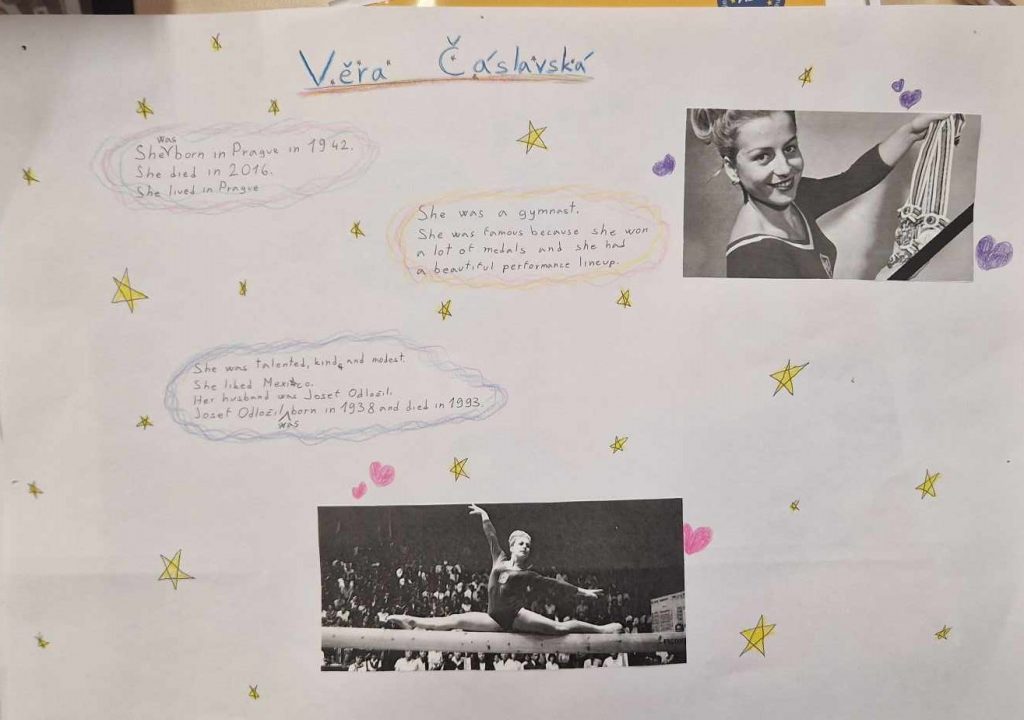 Věra Čáslavská
She was born in Prague in 1942.
She died in 2016.
She lived in Prague
She was a gymnast.
She was famous because she won
a lot of medals and she had
a beautiful performance lineup.
She was talented, kind, and modest.
She liked Mexico.
Her husband was Josef Odložil.
Josef Odložil was born in 1938 and died in 1993.